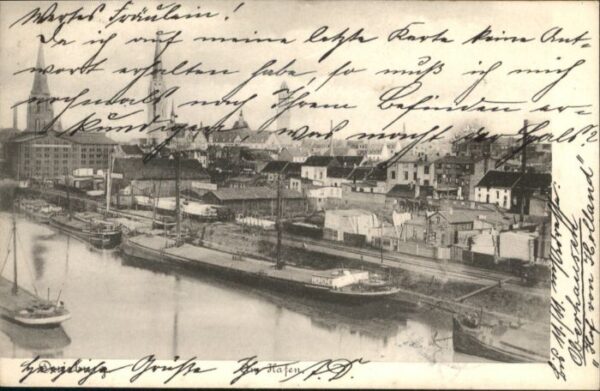 Wertes Fräulein!
Da ich auf meine letzte Karte keine Ant-
wort erhalten habe, so muß ich mich
nochmals nach Ihrem Befinden er-
kundigen, was macht der Hals?
Duisburg. Hafen.
Herzliche Grüße Ihr
Oberhausen
"Hof von Holland"